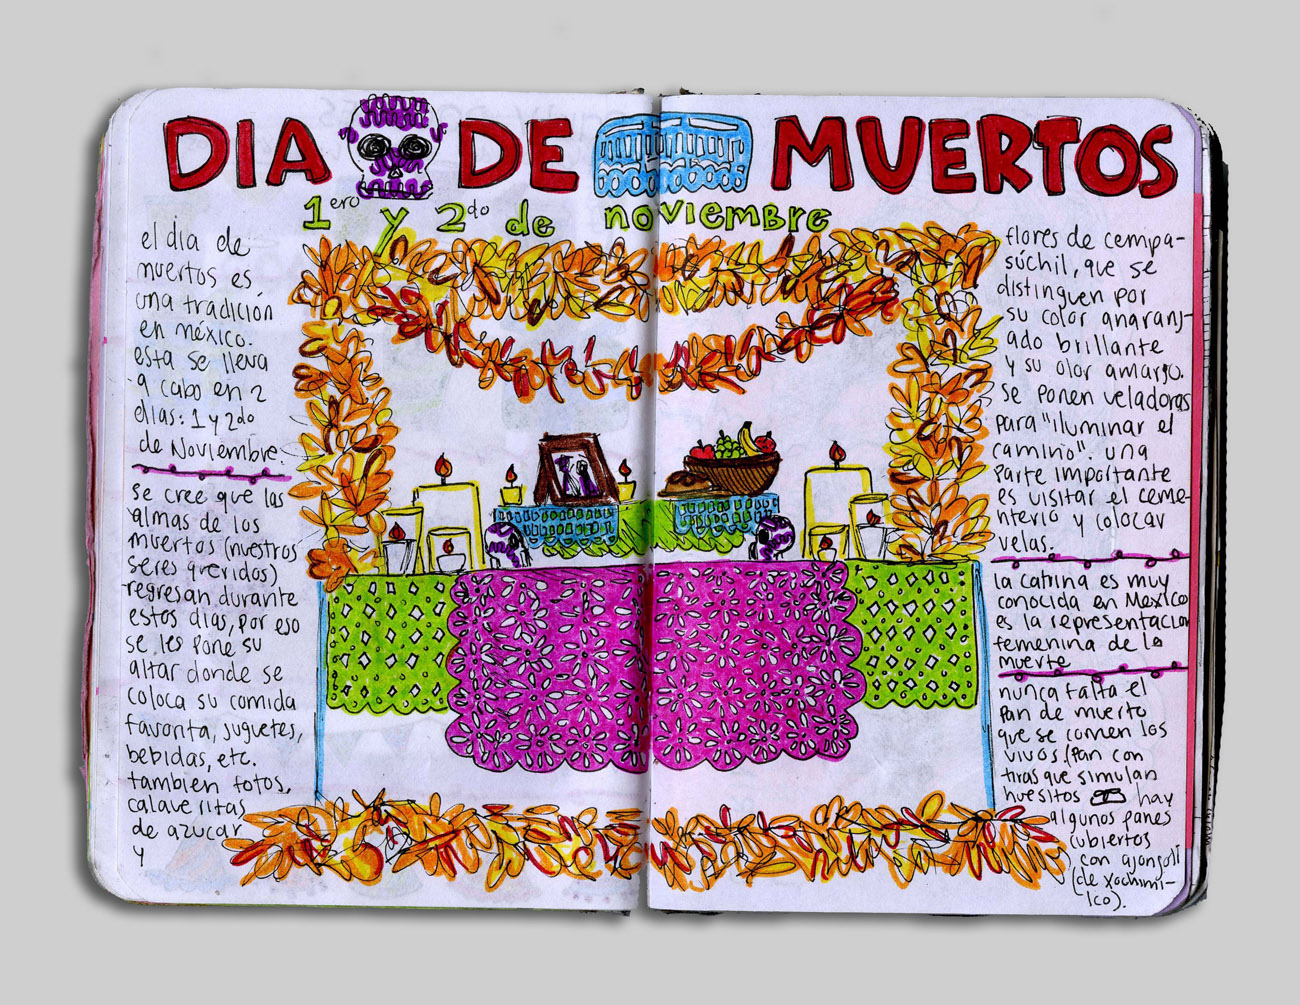 DIA DE MUERTOS
1ero y 2do de noviembre
el dia de
muertos es
una tradición
en méxico.
esta se lleva
a cabo en 2
dias: 1 y 2do
de Noviembre.
se cree que las
almas de los
muertos (nuestros
seres queridos)
regresan durante
estos dias, por eso
se les pone su
altar donde se
coloca su comida
favorita, juguetes,
bebidas, etc.
tambien fotos,
calaveritas
de azucar
y
flores de cempa-
súchil, que se
distinguen por
su color anaranj-
ado brillante
y su olor amargo.
se ponen veladoras
para "iluminar el
camino". una
parte importante
es visitar el ceme-
nterio y colocar
velas.
la catrina es muy
conocida en Mexico
es la representacion
femenina de la
muerte
nunca falta el
pan de muerto
que se comen los
vivos (pan con
tiras que simulan
huesitos hay
algunos panes
cubiertos
con ajonjoli
(de xochimi-
lco).